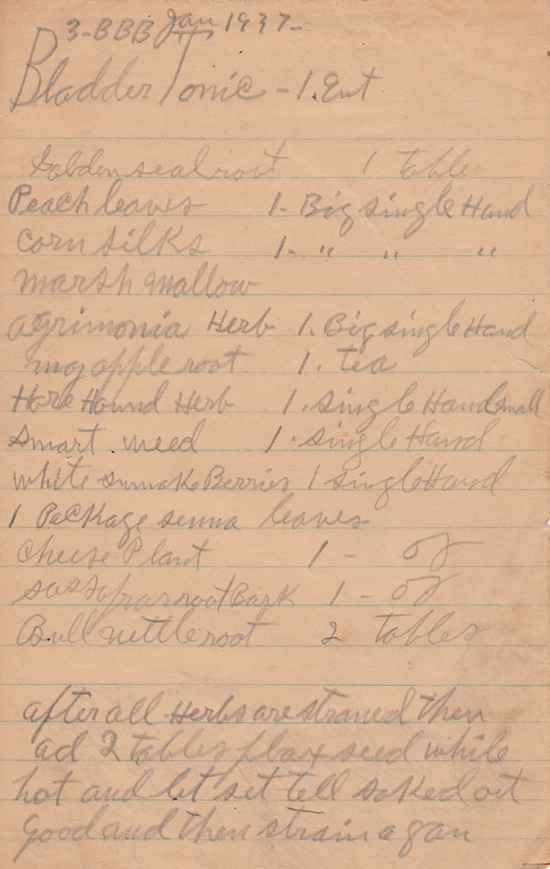 3-BBB Jan 1937-
Bladder Tonic - 1. Ent
Golden seal root 1 table
Peach leaves 1- Big single Hand
corn silks 1- " " "
marsh mallow
agrimonia Herb 1. Big single Hand
may apple root 1. tea
Hore Hound Herb 1. single Hand small
smart weed 1. single Hand
white sumake Berries 1 single Hand
1 Package senna leaves
cheese Plant 1 - oz
sassafras root Bark 1 - oz
Bull nettle root 2 tables
after all Herbs are strained then
ad 2 tables flax seed while
hot and let set tell soked out
good and then strain agan